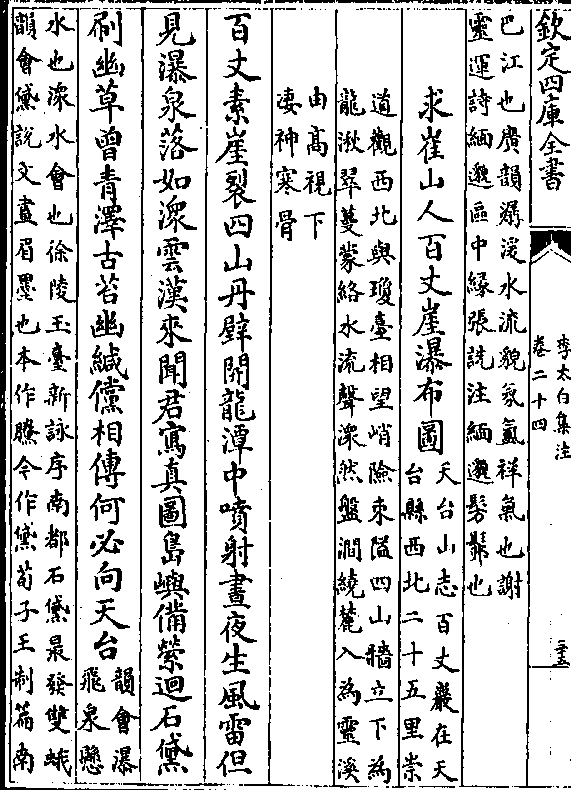 欽定四庫全書
李太白集注
卷二十四
二十五
巴江也廣韻潺湲水流貌氛氲祥氣也謝
靈運詩緬邈區中縁張詵注緬邈髣髴也
求崔山人百丈崖瀑布圖
天台山志百丈巖在天
台縣西北二十五里崇
道觀西北與瓊臺相望峭險束隘四山牆立下為
龍湫翠蔓蒙絡水流聲潀然盤澗繞麓入為靈溪
由高視下
凄神寒骨
百丈素崖裂四山丹壁開龍潭中噴射晝夜生風雷但
見瀑泉落如潀雲漢來聞君寫真圖島嶼備縈迴石黛
刷幽草曾青澤古苔幽緘儻相傳何必向天台
韻會瀑
飛泉懸
水也潀水會也徐陵玉臺新詠序南都石黛最發雙蛾
韻會黛說文畫眉墨也本作黱今作黛荀子王制篇南